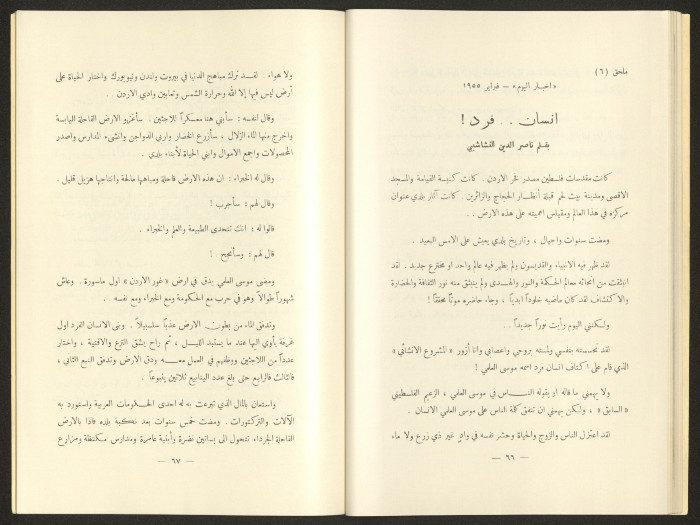 ملحق (٦)
«اخبار اليوم» – فبراير ١٩٥٥
انسان . . فرد !
بقلم ناصر الدين النشاشيبي
كانت مقدسات فلسطين مصدر فخر الاردن . كانت كنيسة القيامة والمسجد
الاقصى ومدينة بيت لحم قبلة أنظار الحجاج والزائرين . كانت آثار بلدي عنوان
مركزه في هذا العالم ومقياس اهميته على هذه الارض . .
ومضت سنوات واجيال ، وتاريخ بلدي يعيش على الامس البعيد .
لقد ظهر فيه الانبياء والقديسون ولم يظهر فيه عالم واحد او مخترع جديد . لقد
انبثقت من انحائه معالم الحكمة والنور والهدى ولم ينبثق منه نور الثقافة والحضارة
والاكتشاف لقد كان ماضيه خلوداً ابدياً ، وجاء حاضره موتاً محققاً !
ولكنني اليوم رأيت نوراً جديداً . .
لقد تحسسته بنفسي ولمسته بروحي واعصابي وانا أزور «المشروع الانشائي»
الذي قام على اكتاف انسان فرد اسمه موسى العلمي !
ولا يهمني ما قاله او يقوله النـاس في موسى العلمي ، الزعيم الفلسطيني
«السابق» ، ولكن يهمني ان تتفق كلمة الناس على موسى العلمي الانسان .
لقد اعتزل الناس والزوج والحياة وحشر نفسه في وادٍ غير ذي زرع ولا ماء
— ٦٦ —
ولا هواء . لقد ترك مباهج الدنيا في بيروت ولندن ونيويورك واختار الحياة على
أرض ليس فيها إلا الله وحرارة الشمس وثعابين وادي الاردن . .
وقال لنفسه : سأبني هنا معسكراً للاجئين . سأغزو الارض القاحلة اليابسة
واخرج منها الماء الزلال ، سأزرع الخضار واربي الدواجن وانشىء المدارس واصدر
المحصولات واجمع الاموال وابني الحياة لأبناء بلدي .
وقال له الخبراء : ان هذه الارض قاحلة ومياهها مالحة وانتاجها هزيل قليل .
وقال لهم : سأجرب !
قالوا له : انك تتحدى الطبيعة والعلم والخبراء .
قال لهم : وسأنجح . !
ومضى موسى العلمي يدق في ارض «غور الاردن» اول ماسورة . وعاش
شهوراً طوالاً وهو في حرب مع الحكومة ومع الخبراء ومع نفسه . .
وتدفق الماء من بطون الارض عذباً سلسبيلاً . وبنى الانسان الفرد اول
غرفة يأوي اليها عند ما يستبد الليـل ، ثم راح يشق الترع والاقنية ، واختار
عدداً من اللاجئين ووظفهم في العمل معـه ودق الارض وتدفق النبع الثاني ،
فالثالث فالرابع حتى بلغ عدد الينابيع ثلاثين ينبوعاً .
واستعان بالمال الذي تبرعت به له احدى الحكومات العربية واستورد به
الآلات والتركتورات . ومضت خمس سنوات بعد نكبة بلده فاذا بالارض
القاحلة الجرداء تتحول الى بساتين نضرة وأبنية عامرة ومدارس مكتظة ومزارع
— ٦٧ —